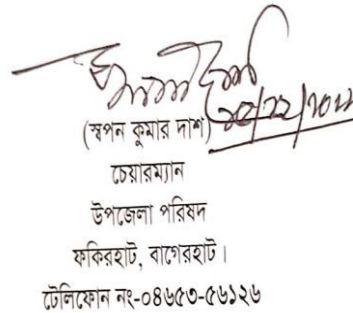 (স্বপন কুমার দাশ)
চেয়ারম্যান
উপজেলা পরিষদ
ফকিরহাট, বাগেরহাট।
টেলিফোন নং-০৪৬৫৩-৫৬১২৬